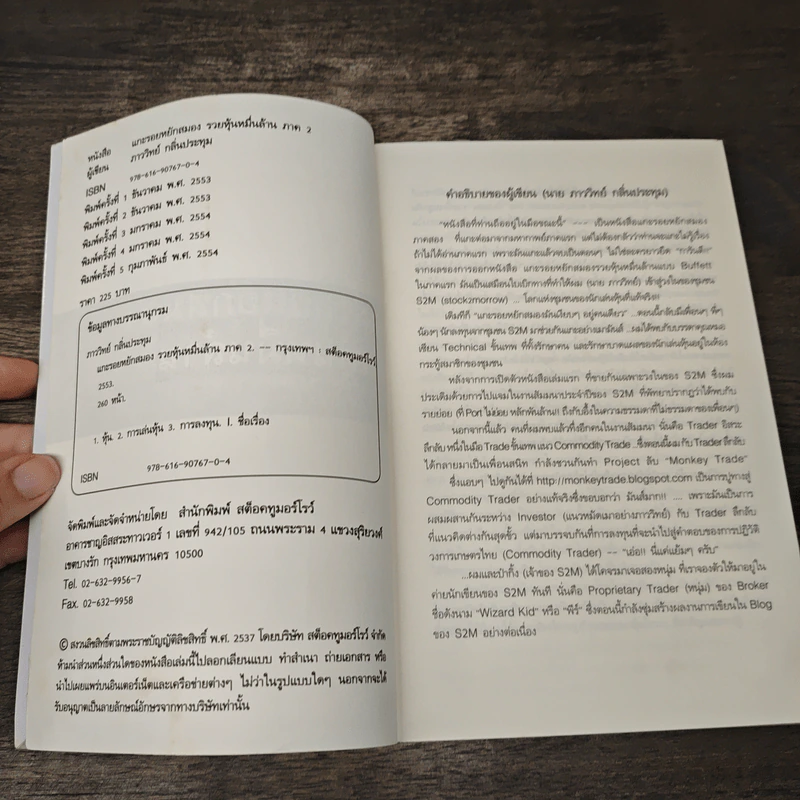 หนังสือ แกะรอยหยักสมอง รวยหุ้นหมื่นล้าน ภาค 2
ผู้เขียน ภาววิทย์ กลิ่นประทุม
ISBN 978-616-90767-0-4
พิมพ์ครั้งที่ 1 ธันวาคม พ.ศ. 2553
พิมพ์ครั้งที่ 2 ธันวาคม พ.ศ. 2553
พิมพ์ครั้งที่ 3 มกราคม พ.ศ. 2554
พิมพ์ครั้งที่ 4 มกราคม พ.ศ. 2554
พิมพ์ครั้งที่ 5 กุมภาพันธ์ พ.ศ. 2554
ราคา 225 บาท
ข้อมูลทางบรรณานุกรม
ภาววิทย์ กลิ่นประทุม
แกะรอยหยักสมอง รวยหุ้นหมื่นล้าน ภาค 2. -- กรุงเทพฯ : สต็อคทูมอร์โรว์
2553.
260 หน้า.
1. หุ้น. 2. การเล่นหุ้น 3. การลงทุน. I. ชื่อเรื่อง
ISBN 978-616-90767-0-4
จัดพิมพ์และจัดจำหน่ายโดย สำนักพิมพ์ สต็อคทูมอร์โรว์
อาคารชาญอิสสระทาวเวอร์ 1 เลขที่ 942/105 ถนนพระราม 4 แขวงสุริยวงศ์
เขตบางรัก กรุงเทพมหานคร 10500
Tel. 02-632-9956-7
Fax. 02-632-9958
© สงวนลิขสิทธิ์ตามพระราชบัญญัติลิขสิทธิ์ พ.ศ. 2537 โดยบริษัท สต็อคทูมอร์โรว์ จำกัด
ห้ามนำส่วนหนึ่งส่วนใดของหนังสือเล่มนี้ไปลอกเลียนแบบ ทำสำเนา ถ่ายเอกสาร หรือ
นำไปเผยแพร่บนอินเตอร์เน็ตและเครือข่ายต่างๆ ไม่ว่าในรูปแบบใดๆ นอกจากจะได้
รับอนุญาตเป็นลายลักษณ์อักษรจากทางบริษัทเท่านั้น
คำอธิบายของผู้เขียน (นาย ภาววิทย์ กลิ่นประทุม)
"หนังสือที่ท่านถืออยู่ในมือขณะนี้" --- เป็นหนังสือแกะรอยหยักสมอง
ภาคสอง ที่แกะต่อมาจากมหากาพย์ภาคแรก แต่ไม่ต้องกลัวว่าท่านจะแกะไม่รู้เรื่อง
ถ้าไม่ได้อ่านภาคแรก เพราะมันแกะแล้วจบเป็นตอนๆ ไม่ใช่ละครยาวยืด
จากผลของการออกหนังสือ แกะรอยหยักสมองรวยหุ้นหมื่นล้านแบบ Buffett
ในภาคแรก มันเป็นเสมือนใบเบิกทางที่ทำให้ผม (นาย ภาววิทย์) เข้าสู่วงในของชุมชน
S2M (stock2morrow) ... โลกแห่งชุมชนของนักเล่นหุ้นที่แท้จริง!
เดิมทีก็ "แกะรอยหยักสมองมันเงียบๆ อยู่คนเดียว" ...ตอนนี้กลับมีเพื่อนๆ พี่ๆ
น้องๆ นักลงทุนจากชุมชน S2M มาช่วยกันแกะอย่างเมามันส์ ..ผมได้พบกับบรรดาคุณหมอ
เซียน Technical ชั้นเทพ ที่ทั้งรักษาคน และรักษาบาดแผลของนักเล่นหุ้นอยู่ในห้อง
กระทู้สมาชิกของชุมชน
หลังจากการเปิดตัวหนังสือเล่มแรก ที่ขายกันเฉพาะวงในของ S2M ซึ่งผม
ประเดิมด้วยการไปแจมในงานสัมมนาประจำปีของ S2M ที่พัทยาปรากฏว่าได้พบกับ
รายย่อย (ที่ Port ไม่ย่อย หลักพันล้าน!! ถึงกับอึ้งในความธรรมดาที่ไม่ธรรมดาของเพื่อนๆ)
นอกจากนี้แล้ว คนที่ผมพบแล้วทึ่งอีกคนในงานสัมมนา นั่นคือ Trader อิสระ
ลึกลับ หนึ่งในมือ Trade ชั้นเทพ แนว Commodity Trade ...ซึ่งตอนนี้ผม กับ Trader ลึกลับ
ได้กลายมาเป็นเพื่อนสนิท กำลังชวนกันทำ Project ลับ "Monkey Trade"
ซึ่งแอบๆ ไปดูกันได้ที่ http://monkeytrade.blogspot.com เป็นการปูทางสู่
Commodity Trader อย่างแท้จริงซึ่งขอบอกว่า มันส์มาก!! .... เพราะมันเป็นการ
ผสมผสานกันระหว่าง Investor (แนวหมัดเมาอย่างภาววิทย์) กับ Trader ลึกลับ
ที่แนวคิดต่างกันสุดขั้ว แต่มาบรรจบกันที่การลงทุนที่จะนำไปสู่คำตอบของการปฏิวัติ
วงการเกษตรไทย (Commodity Trader) -- "เอ่อ!! นี่แค่แย้มๆ ครับ"
...ผมและป๋ากิ้ง (เจ้าของ S2M) ได้โคจรมาเจอสองหนุ่ม ที่เราจองตัวให้มาอยู่ใน
ค่ายนักเขียนของ S2M ทันที นั่นคือ Proprietary Trader (หนุ่ม) ของ Broker
ชื่อดังนาม "Wizard Kid" หรือ "พีร์" ซึ่งตอนนี้กำลังซุ่มสร้างผลงานการเขียนใน Blog
ของ S2M อย่างต่อเนื่อง